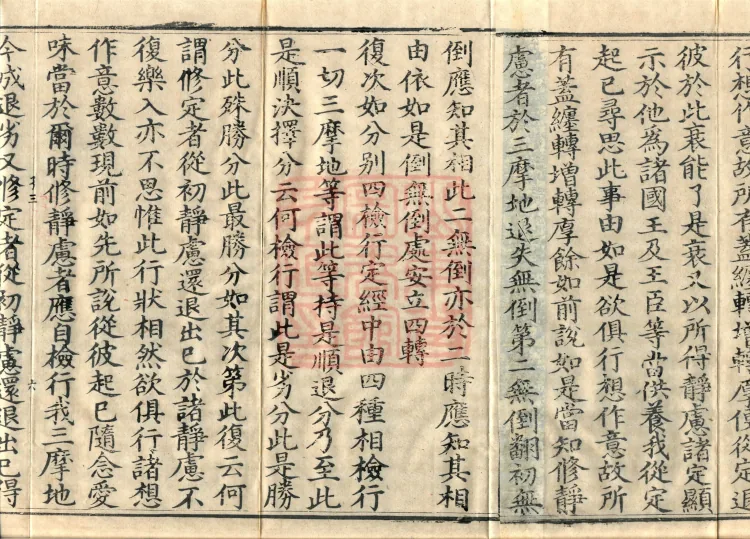 行想作意故所有蓋纏轉增轉厚彼從定退
彼於此衰能了是衰又以所得靜慮諸定顯
示於他為諸國王及王臣等當供養我從定
起已尋思此事由如是欲俱行想作意故所
有蓋纏轉增轉厚餘如前說如是當知修靜
慮者於三摩地退失無倒第二無倒翻初無
倒應知其相此二無倒亦於二時應知其相
由依如是倒無倒處安立四轉
復次如分別四檢行定經中由四種相檢行
一切三摩地等謂此等持是順退分乃至此
是順決擇分云何檢行謂此是劣分此是勝
分此殊勝分此最勝分如其次第此復云何
謂修定者從初靜慮還退出已於諸靜慮不
復樂入亦不思惟此行狀相然欲俱行諸想
作意數數現前如先所說從彼起已隨念愛
味當於爾時修靜慮者應自檢行我三摩地
十三
六
今成退劣又修定者從初靜慮還退出已得